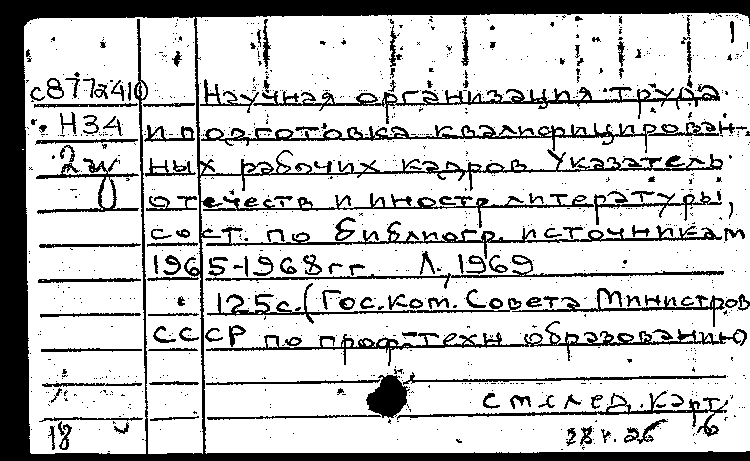 с8772410 Научная организация труда
Н34 и подготовка квалифицирован-
2 ных рабочих кадров. Указатель
отечеств и иностр литературы,
сост. по библиогр. источникам
1965-1968 гг. Л., 1969
125с. (Гос. ком. Совета Министров
СССР по проф.-техн образованию
см след. карт
18 6